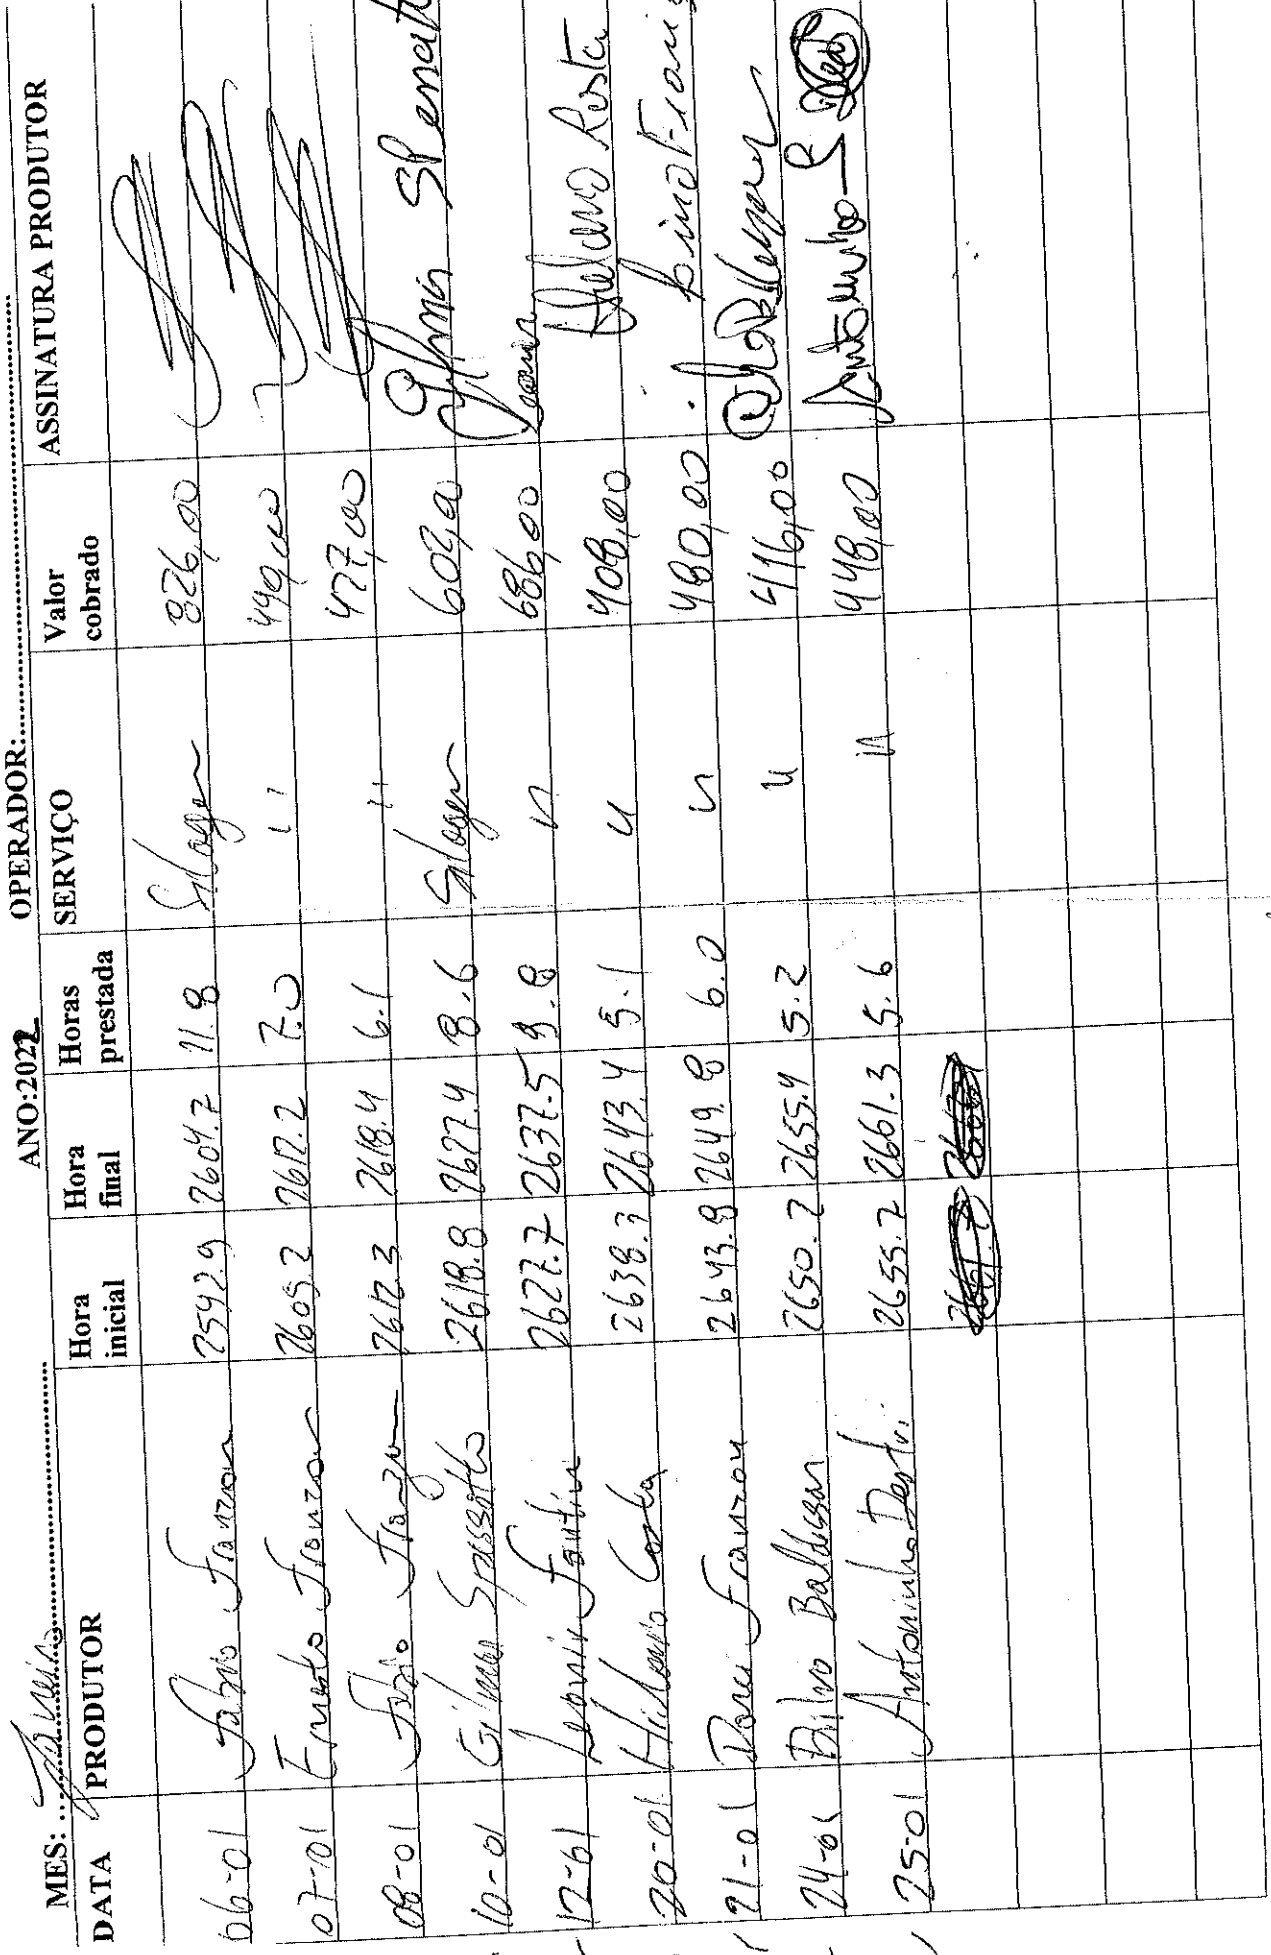 MES: Janeiro ANO:2022 OPERADOR:
DATA PRODUTOR Hora inicial Hora final Horas prestada SERVIÇO Valor cobrado ASSINATURA PRODUTOR
06-01 Fabio Franzon 2592.9 2604.7 11.8 Silagem 826,00
07-01 Ernesto Franzon 2605.2 2612.2 7.0 '' 490,00
08-01 Fabio Franzon 2612.3 2618.4 6.1 '' 427,00
10-01 Gilmar Spessatto 2618.8 2627.4 8.6 Silagem 602,00 Gilmar
12-01 Leonir Fantin 2627.7 2637.5 9.8 '' 686,00 Leonir
20-01 Hildemo Costa 2638.3 2643.4 5.1 '' 408,00 Costa
21-01 Darci Franzon 2643.8 2649.8 6.0 '' 480,00
24-01 Dilvo Baldissar 2650.2 2655.4 5.2 '' 416,00
25-01 Antoninho Destri 2655.7 2661.3 5.6 '' 448,00 Antoninho